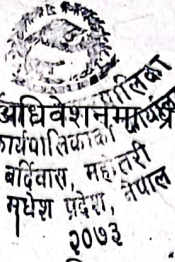 अधिवेशनमा
कार्यपालिकाको कार्यालय
बर्दिवास, महोत्तरी
मधेश प्रदेश, नेपाल
२०७३